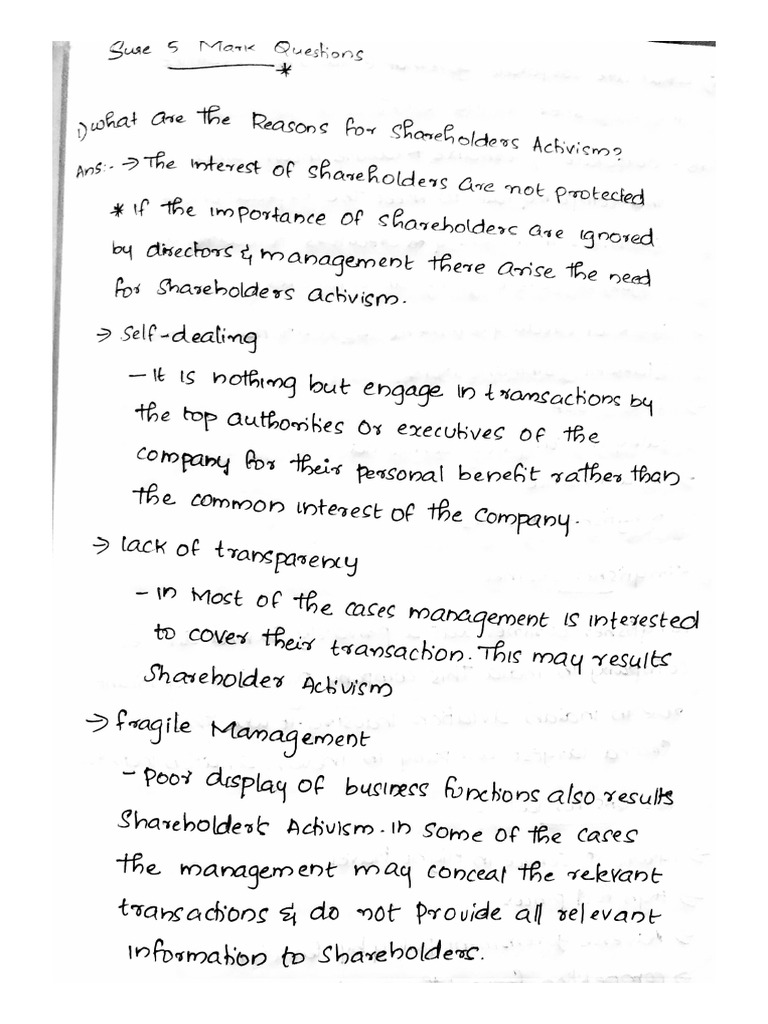 Sure 5 Mark Questions
*
1) what are the Reasons for Shareholders Activism?
Ans:- → The Interest of Shareholders are not protected
* If the importance of shareholders are ignored
by directors & management there arise the need
for Shareholders activism.
→ Self-dealing
- It is nothing but engage in transactions by
the top authorities or executives of the
company for their personal benefit rather than
the common interest of the company.
→ lack of transparency
- In Most of the cases management is interested
to cover their transaction. This may results
Shareholder Activism
→ fragile Management
- poor display of business functions also results
Shareholder's Activism. In some of the cases
the management may conceal the relevant
transactions & do not provide all relevant
information to shareholders.